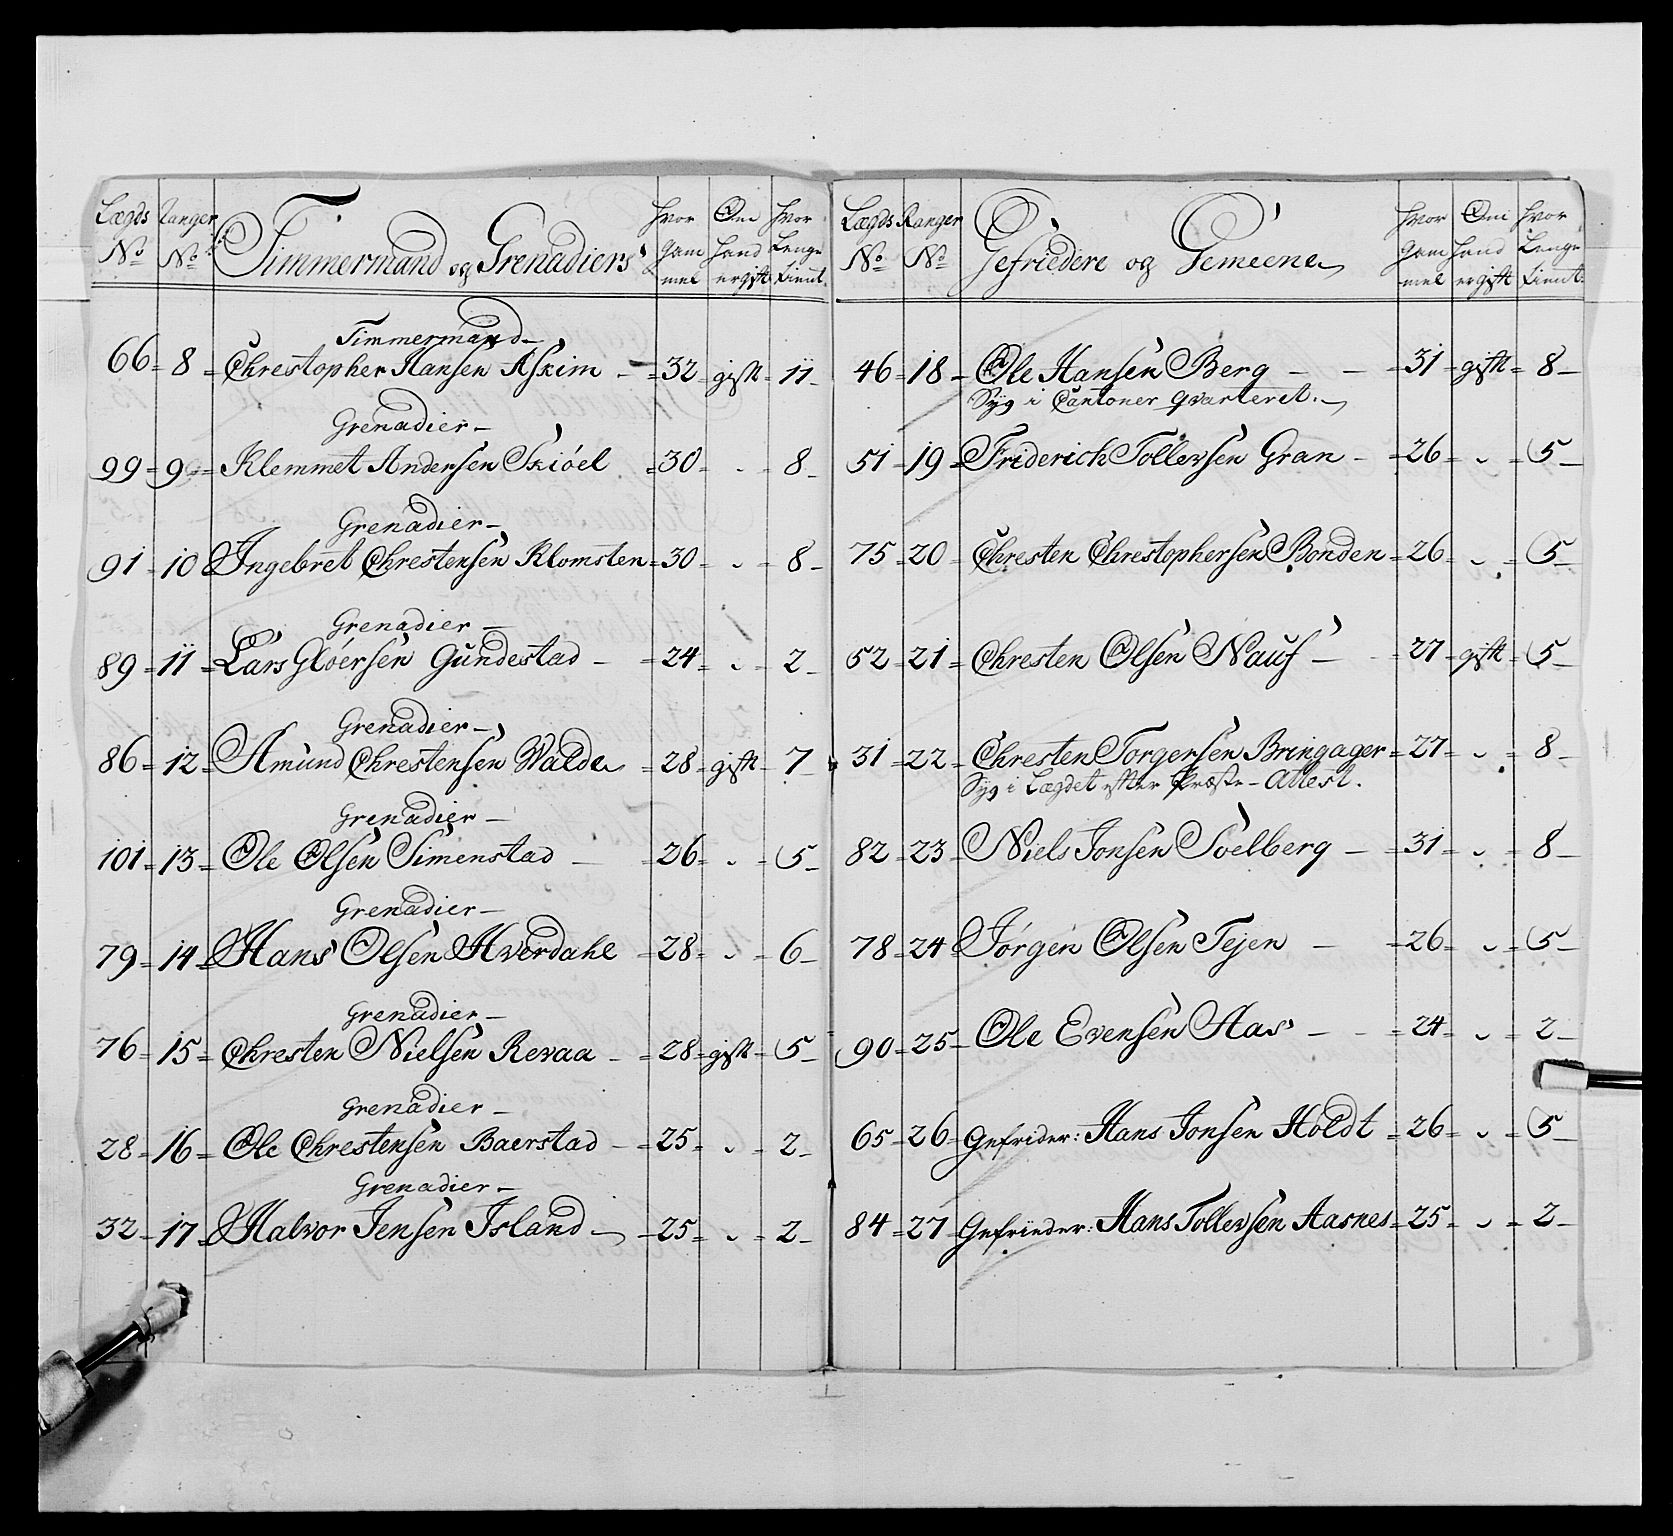 Lægds Ranger Timmermand og Grenadiers Hvor Om Hvor
No No Gam hand Lenge
mel er gift tient.
Timmermand
66 8 Chrestopher Hansen Askim 32 gift 11
Grenadier
99 9 Klemmet Andersen Skiøel 30 8
Grenadier
91 10 Ingebret Chrestensen Klomsten 30 8
Grenadier
89 11 Lars Gløersen Gundestad 24 2
Grenadier
86 12 Amund Chrestensen Walde 28 gift 7
Grenadier
101 13 Ole Olsen Simenstad 26 5
Grenadier
79 14 Hans Olsen Hverdahl 28 6
Grenadier
76 15 Chresten Nielsen Revaa 28 gift 5
Grenadier
28 16 Ole Chrestensen Baerstad 25 2
Grenadier
32 17 Halvor Jensen Island 25 2
Lægds Ranger Gefriedere og Gemeene Hvor Om Hvor
No No Gam hand Lenge
mel er gift tient.
46 18 Ole Hansen Berg 31 gift 8
Syg i Cantoner qvarteret.
51 19 Friderich Tollevsen Gran 26 5
75 20 Chresten Chrestophersen Bonden 26 5
52 21 Chresten Olsen Nauf 27 gift 5
31 22 Chresten Torgersen Bringager 27 8
Syg i Lægdet efter Præste-Attest.
82 23 Niels Jonsen Soelberg 31 8
78 24 Jørgen Olsen Tejen 26 5
90 25 Ole Evensen Aas 24 2
65 26 Gefrider: Hans Jonsen Holdt 26 5
84 27 Gefrieder: Hans Tollevsen Aasnes 25 2